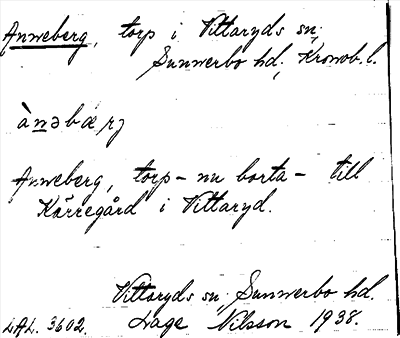 Anneberg, torp i Vittaryds sn,
Sunnerbo hd, Kronob. l.
ànəbærj
Anneberg, torp - nu borta - till
Kärregård i Vittaryd.
Vittaryds sn, Sunnerbo hd.
LAL. 3602. Lage Nilsson 1938.